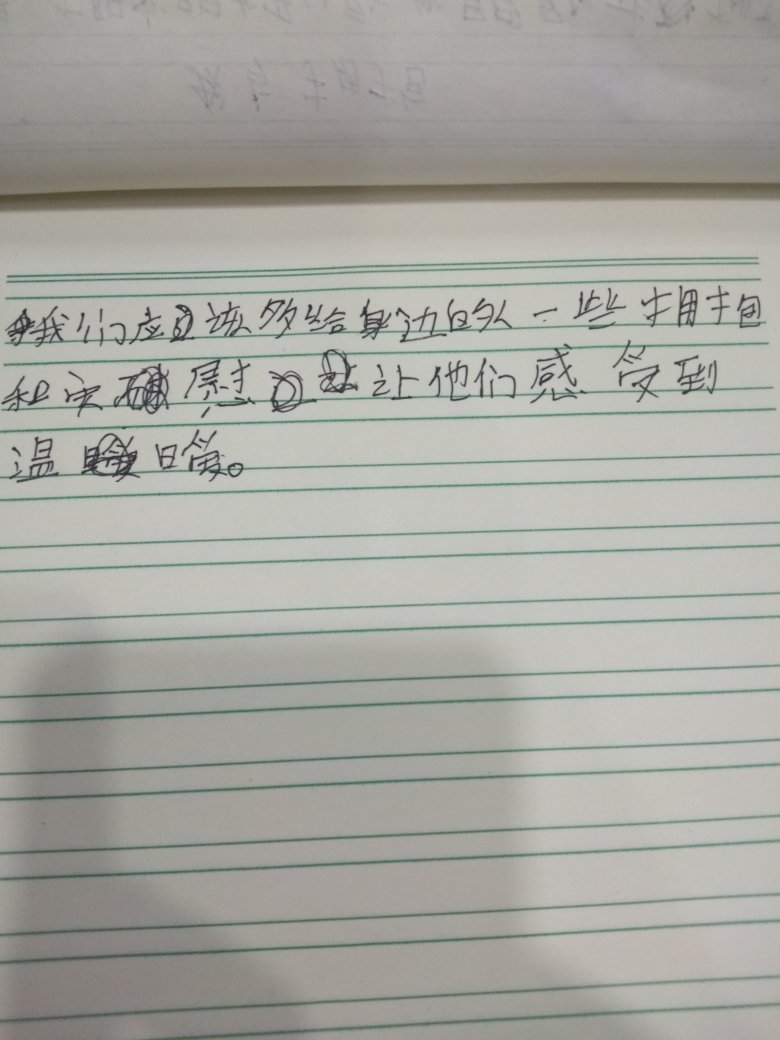 我们应该多给身边的人一些拥抱
和安慰让他们感受到
温暖。